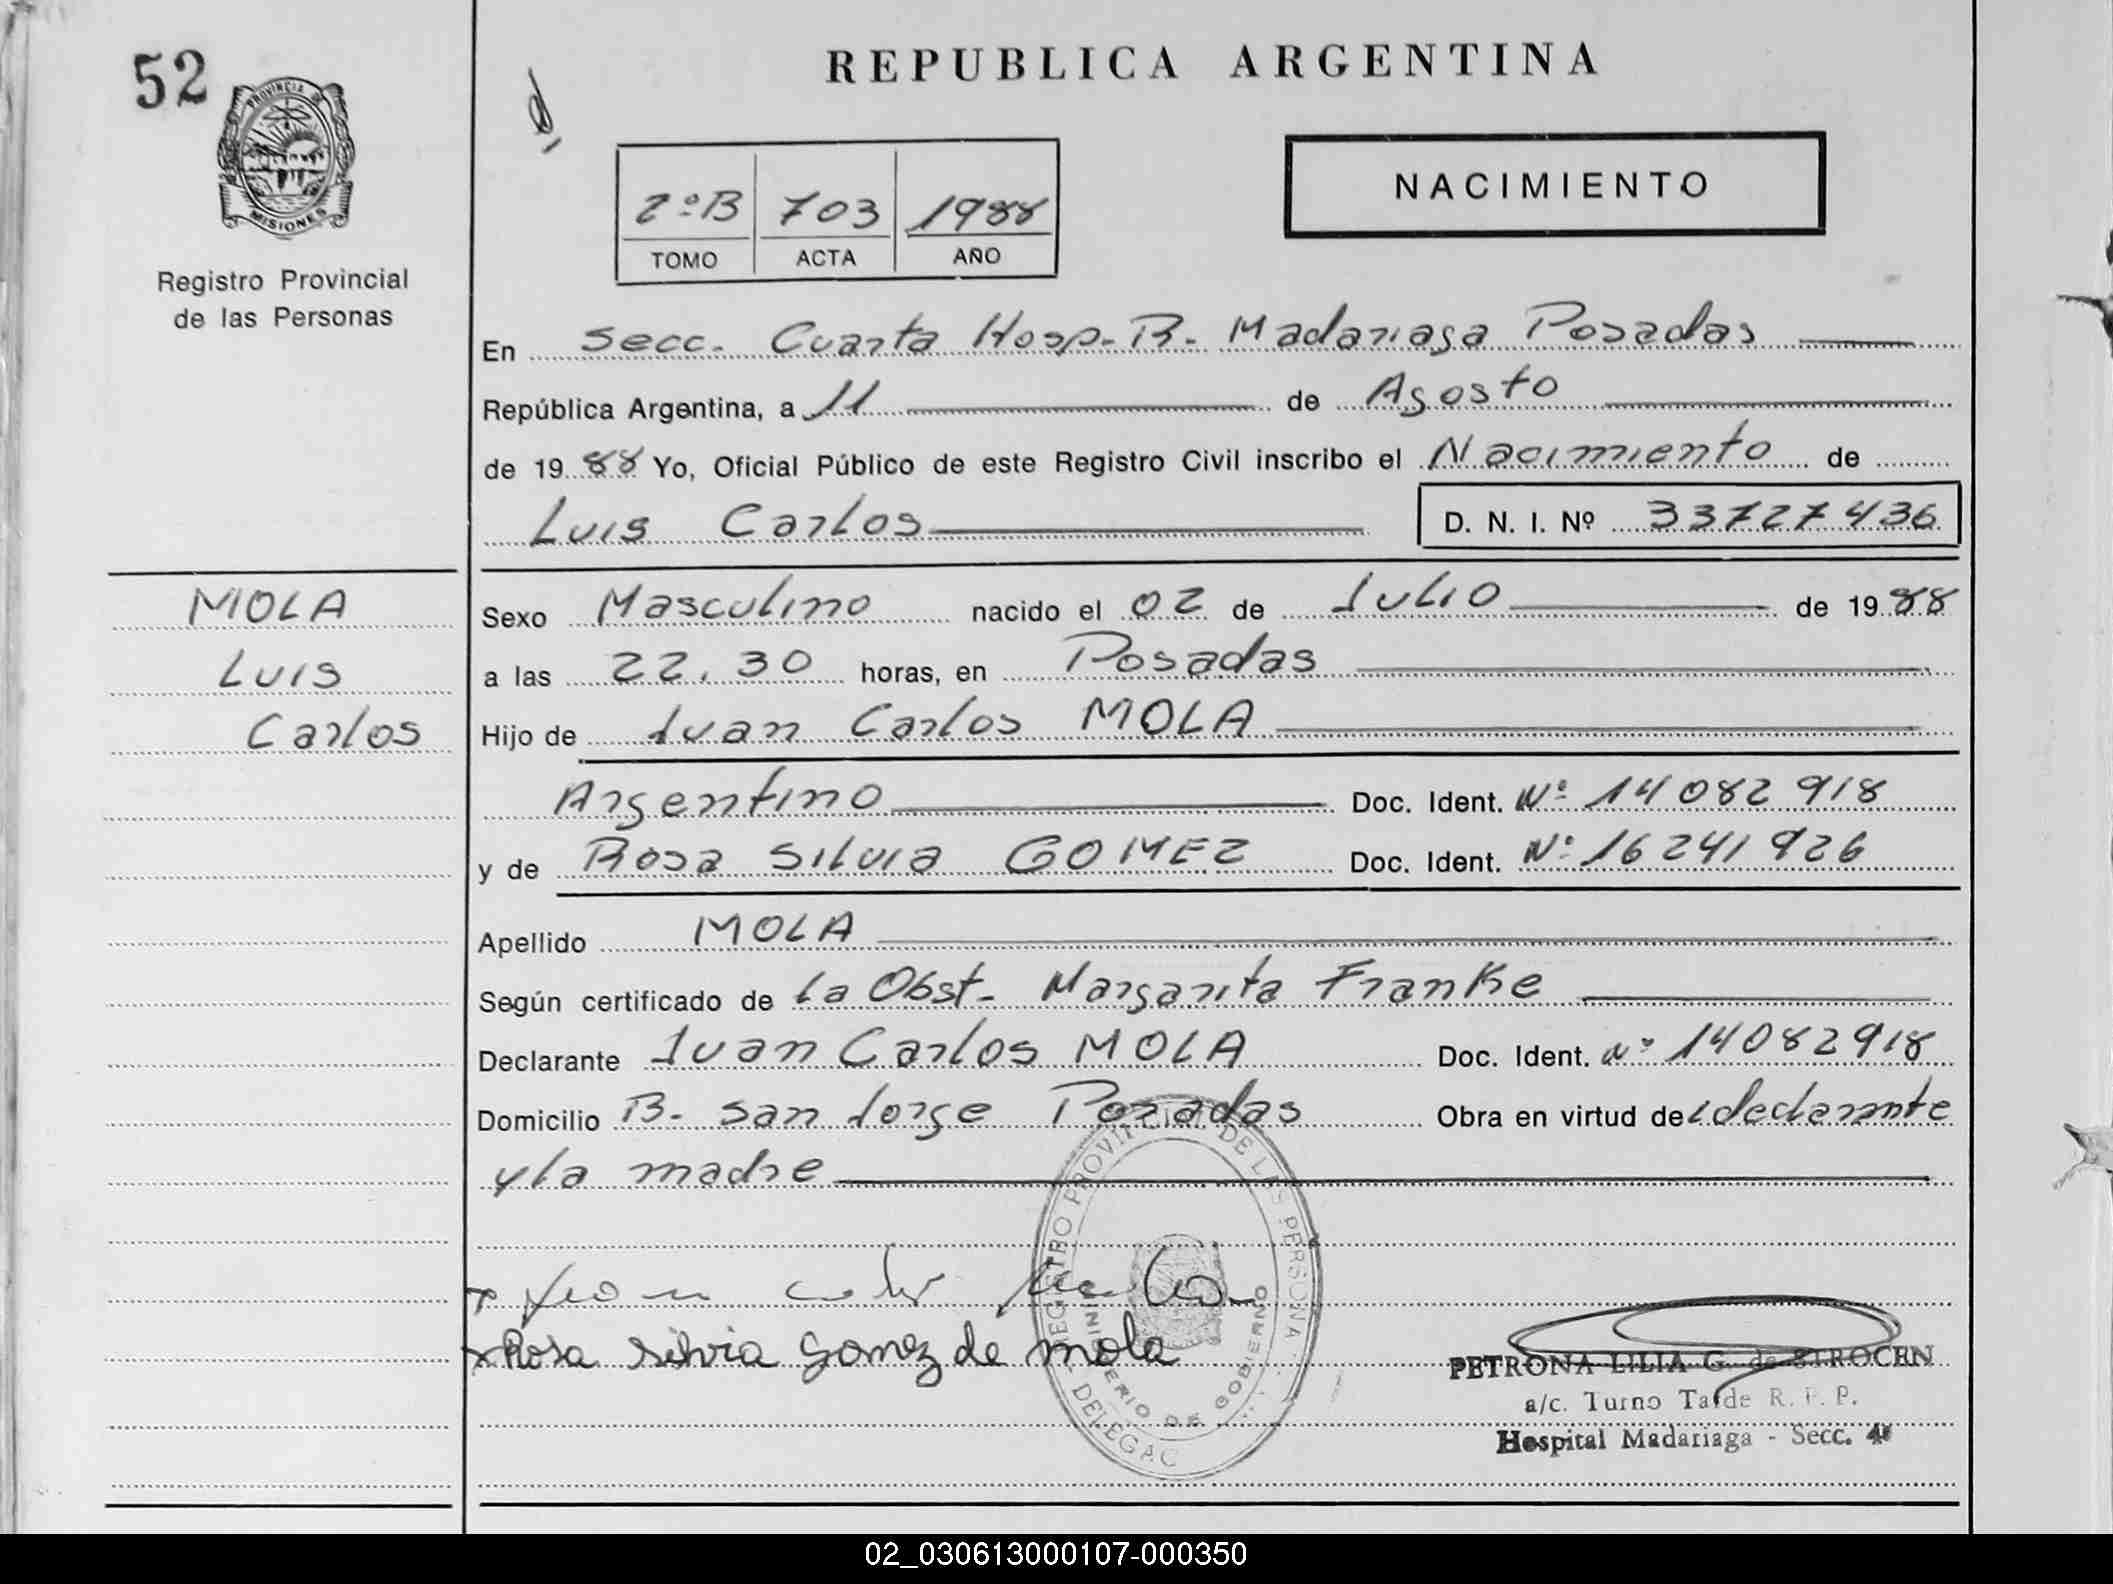 52
REPUBLICA ARGENTINA
PROVINCIA DE
MISIONES
Registro Provincial
de las Personas
2º B 703 1988
TOMO ACTA AÑO
NACIMIENTO
En Secc. Cuarta Hosp. R. Madariaga Posadas
República Argentina, a 11 de Agosto
de 1988 Yo, Oficial Público de este Registro Civil inscribo el Nacimiento de
Luis Carlos D. N. I. Nº 33727436
MOLA
Luis
Carlos
Sexo Masculino nacido el 02 de Julio de 1988
a las 22,30 horas, en Posadas
Hijo de Juan Carlos MOLA
Argentino Doc. Ident. Nº 14082918
y de Rosa Silvia GOMEZ Doc. Ident. Nº 16241926
Apellido MOLA
Según certificado de la Obst. Margarita Franke
Declarante Juan Carlos MOLA Doc. Ident. nº 14082918
Domicilio B. San Jorge Posadas Obra en virtud de declarante
y la madre
REGISTRO PROVINCIAL DE LAS PERSONAS
MINISTERIO DE GOBIERNO
DELEGAC
x Rosa Silvia Gomez de mola
PETRONA LILIA G. de SIROCEN
a/c. Turno Tarde R. P. P.
Hospital Madariaga - Secc. 4ª
02_030613000107-000350